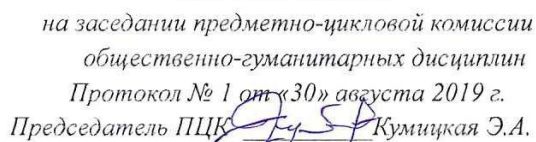 на заседании предметно-цикловой комиссии
общественно-гуманитарных дисциплин
Протокол № 1 от «30» августа 2019 г.
Председатель ПЦК Кумицкая Э.А.